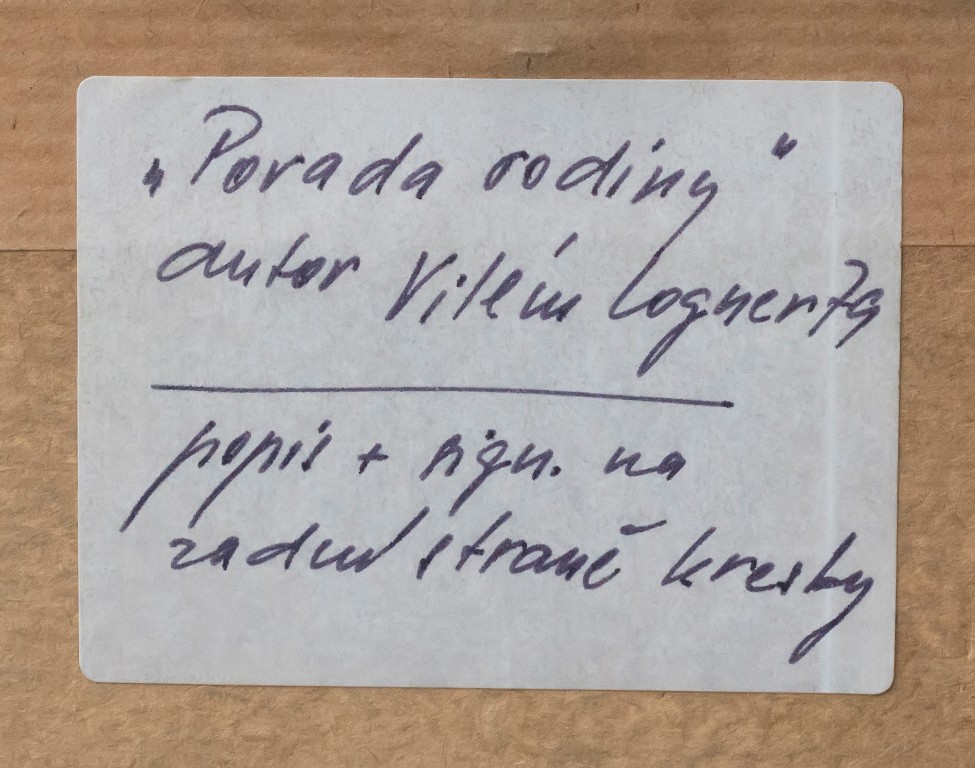 „Porada rodiny“
autor Vilém
popis + sign. na
zadní straně kresby